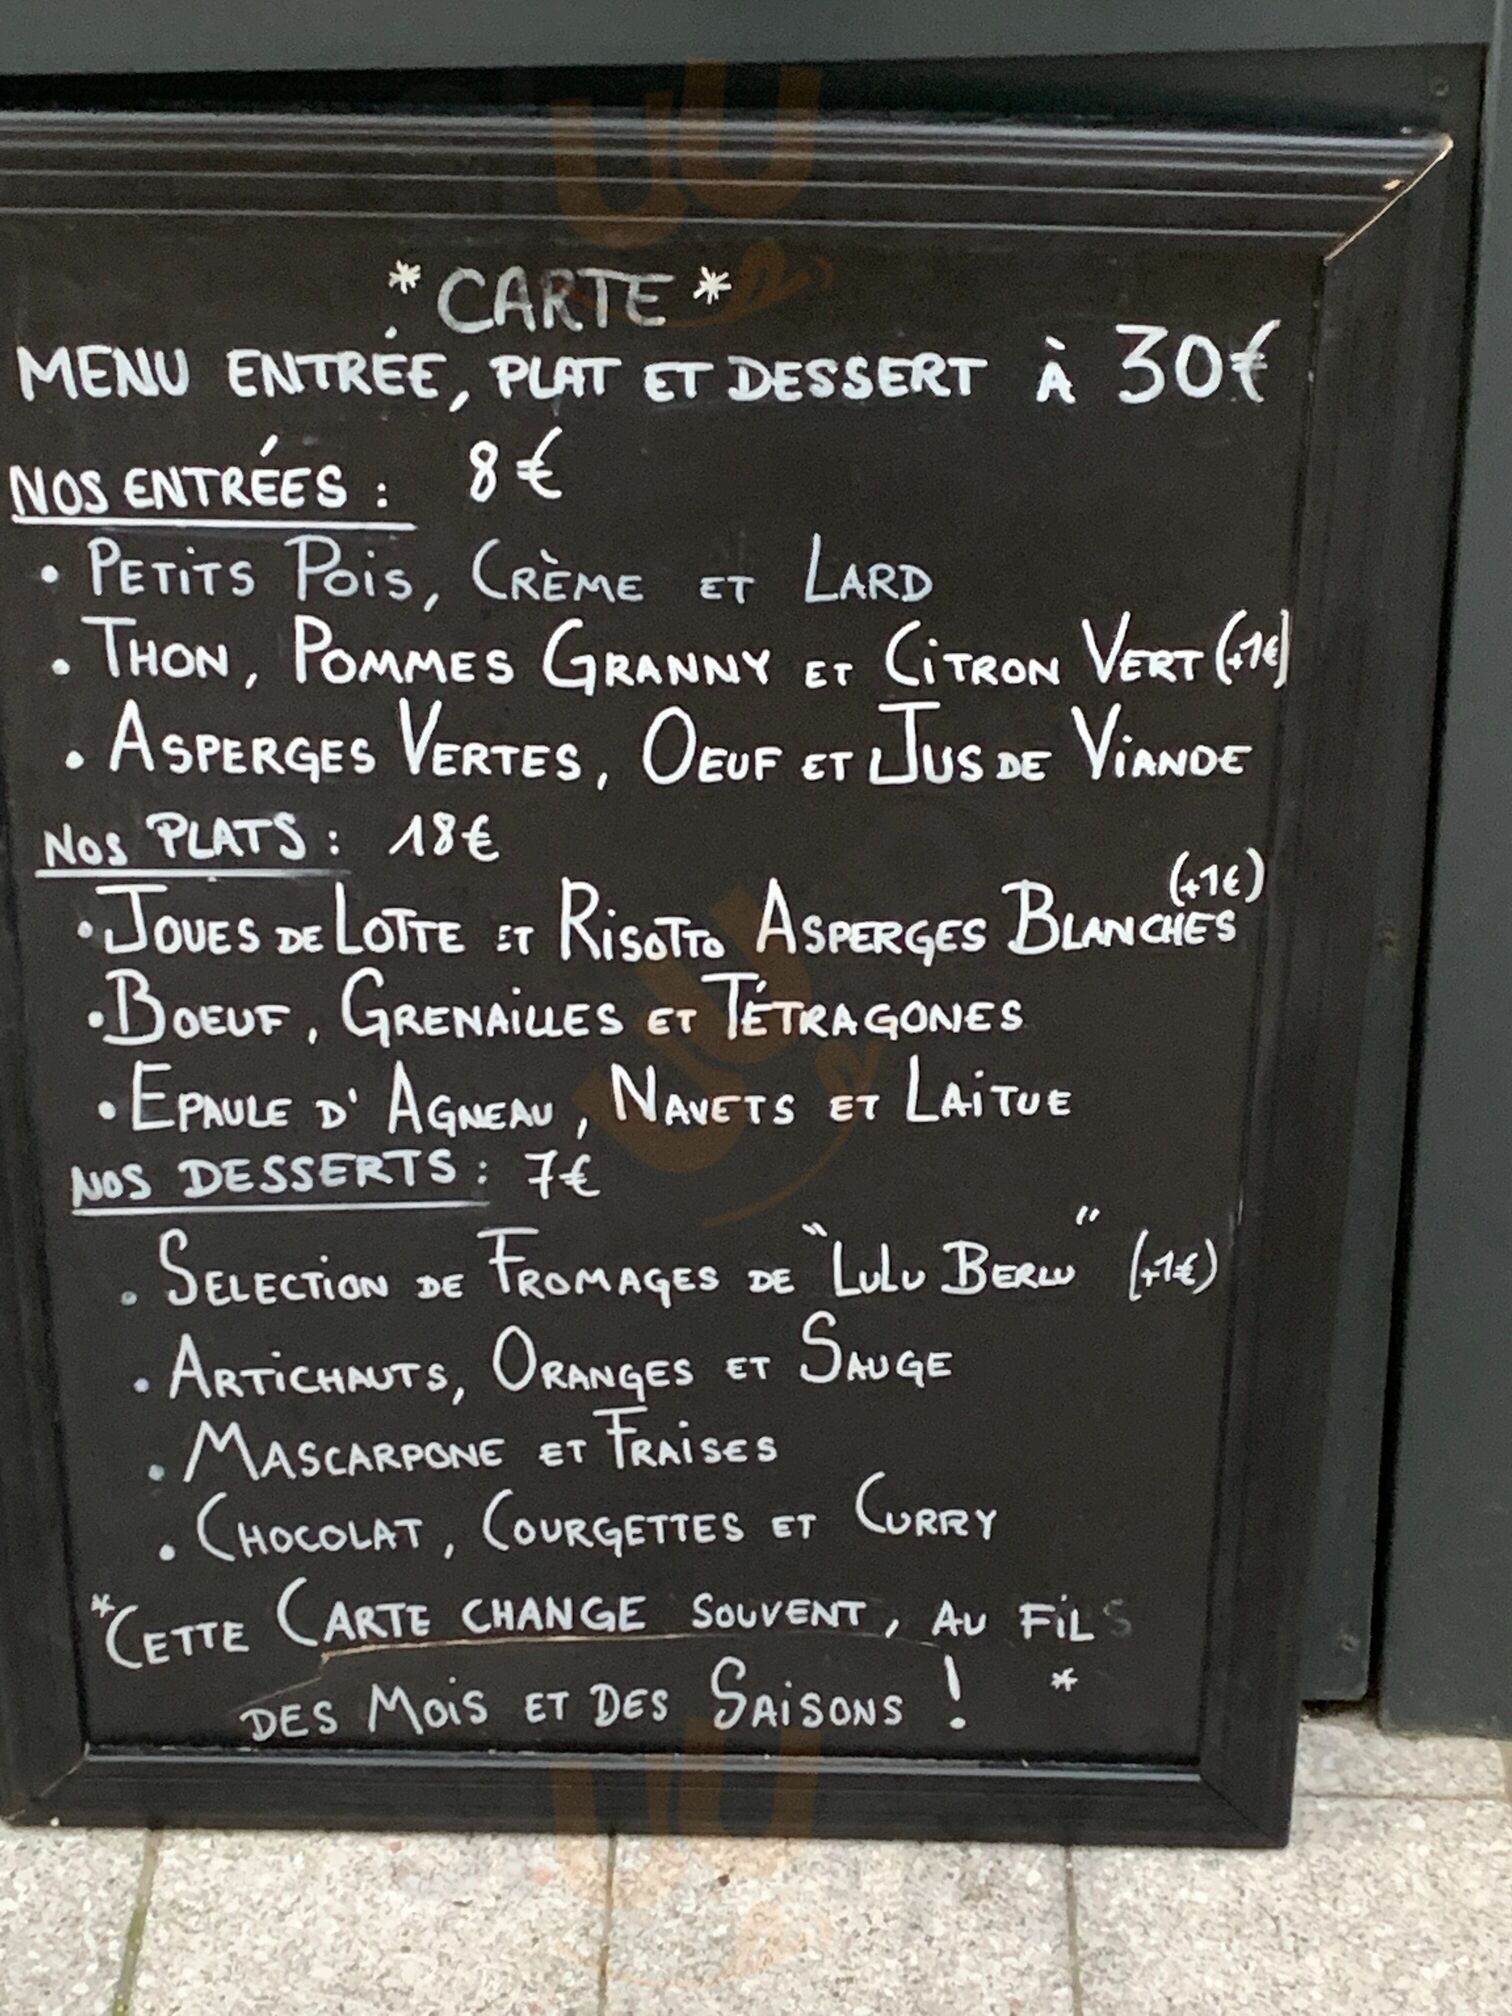 *CARTE*
MENU ENTRÉE, PLAT ET DESSERT À 30€
NOS ENTRÉES : 8€
• PETITS POIS, CRÈME ET LARD
• THON, POMMES GRANNY ET CITRON VERT (+1€)
• ASPERGES VERTES, OEUF ET JUS DE VIANDE
NOS PLATS : 18€
(+1€)
• JOUES DE LOTTE ET RISOTTO ASPERGES BLANCHES
• BOEUF, GRENAILLES ET TÉTRAGONES
• EPAULE D'AGNEAU, NAVETS ET LAITUE
NOS DESSERTS : 7€
• SELECTION DE FROMAGES DE "LULU BERLU" (+1€)
• ARTICHAUTS, ORANGES ET SAUGE
• MASCARPONE ET FRAISES
• CHOCOLAT, COURGETTES ET CURRY
*CETTE CARTE CHANGE SOUVENT, AU FILS
DES MOIS ET DES SAISONS ! *